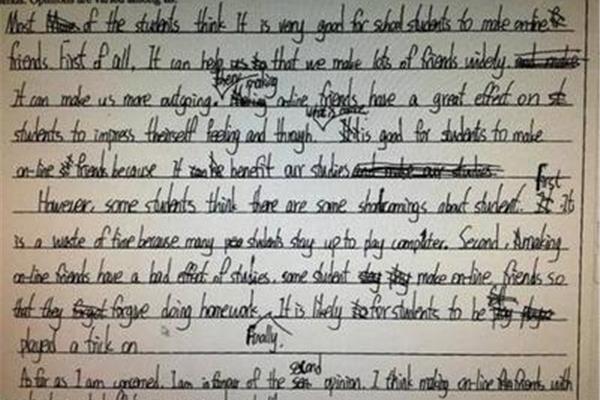 Most of the students think It is very good for school students to make on-line
friends. First of all, It can help us that we make lots of friends widely.
It can make us more outgoing. Then making online friends have a great effect on
students to impress theirself feeling and through. What's more, It is good for students to make
on-line friends because It can benefit our studies
However, some students think there are some shotcomings about student. First It
is a waste of time because many students stay up to play computer. Second, making
on-line friends have a bad effect of studies. some student make on-line friends so
that they forgive doing homework. Finally, It is likely for students to be
played a trick on
As far as I am concerned, I am in favor of the second opinion. I think making on-line friends with